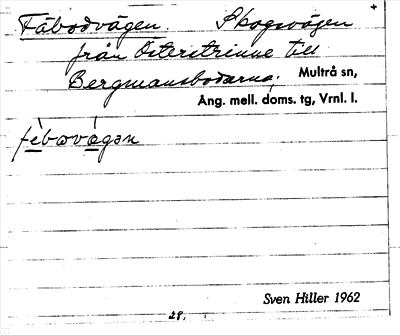 Fäbodvägen. Skogsvägen
från Österstrinne till
Bergmansbodarna. Multrå sn,
Ång. mell. doms. tg, Vrnl. l.
fèbovágən
Sven Hiller 1962
28.